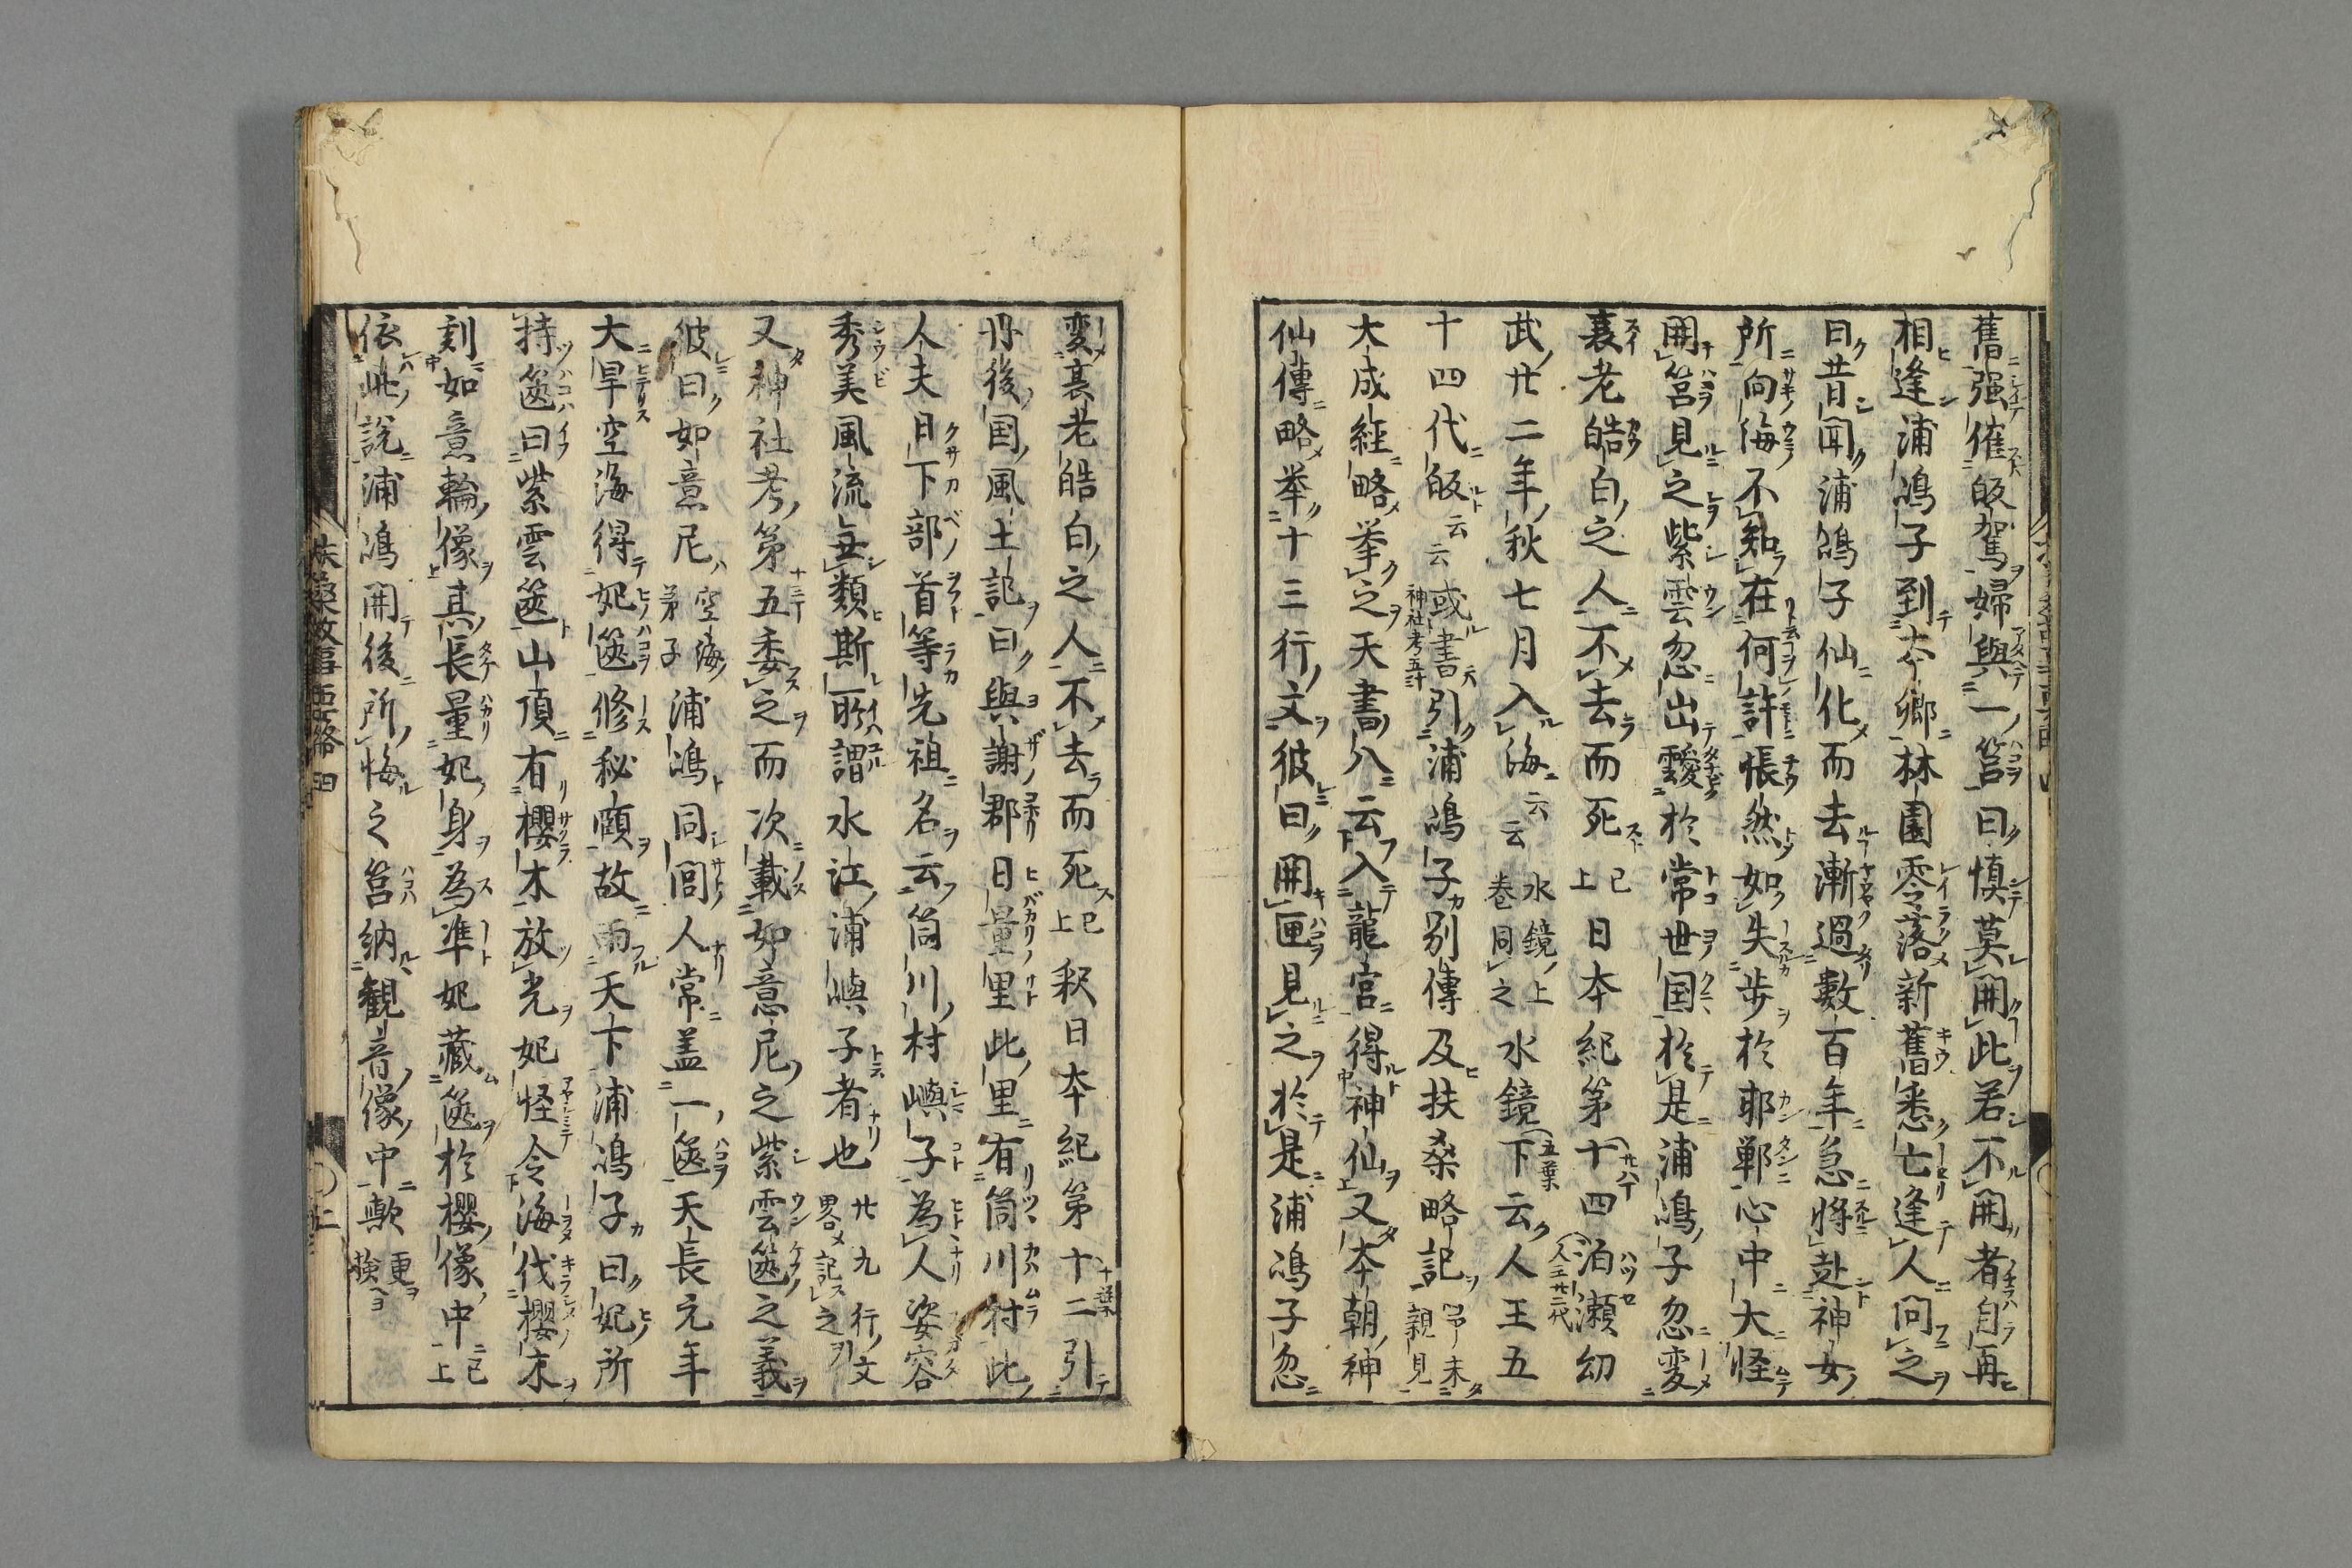 舊强催皈駕婦與一筥曰慎莫開此若不開者自再
相逢浦嶋子到本鄉林園零落新舊悉亡逢人問之
曰昔聞浦嶋子仙化而去漸過數百年急將赴神女
所向海不知在何許悵然如失步於邯鄲心中大怪
開筥見之紫雲忽出靉於常世国於是浦嶋子忽変
衰老皓白之人不去而死已上日本紀第十四泊瀬幼
武廿二年秋七月入海云云水鏡上巻同之水鏡下云人王五
十四代皈云云或書引浦嶋子別傳及扶桑略記予未親見
大成経略挙之天書八云入龍宮得神仙又本朝神
仙傳略挙十三行文彼曰開匣見之於是浦嶋子忽
変衰老皓白之人不去而死已上釈日本紀第十二引
丹後国風土記曰與謝郡日量里此里有筒川村此
人夫日下部首等先祖名云筒川村嶼子為人姿容
秀美風流無類斯所謂水江浦嶼子者也廿九行文畧記之
又神社考第五委之而次載如意尼之紫雲篋之義
彼曰如意尼空海弟子浦嶋同閭人常盖一篋天長元年
大旱空海得妃篋修秘願故雨天下浦嶋子曰妃所
持篋曰紫雲篋山頂有櫻木放光妃怪令海代櫻木
刻如意輪像其長量妃身為準妃藏篋於櫻像中已上
依此說浦嶋開後所悔之筥納觀音像中歟更検
扶桑故事要略四